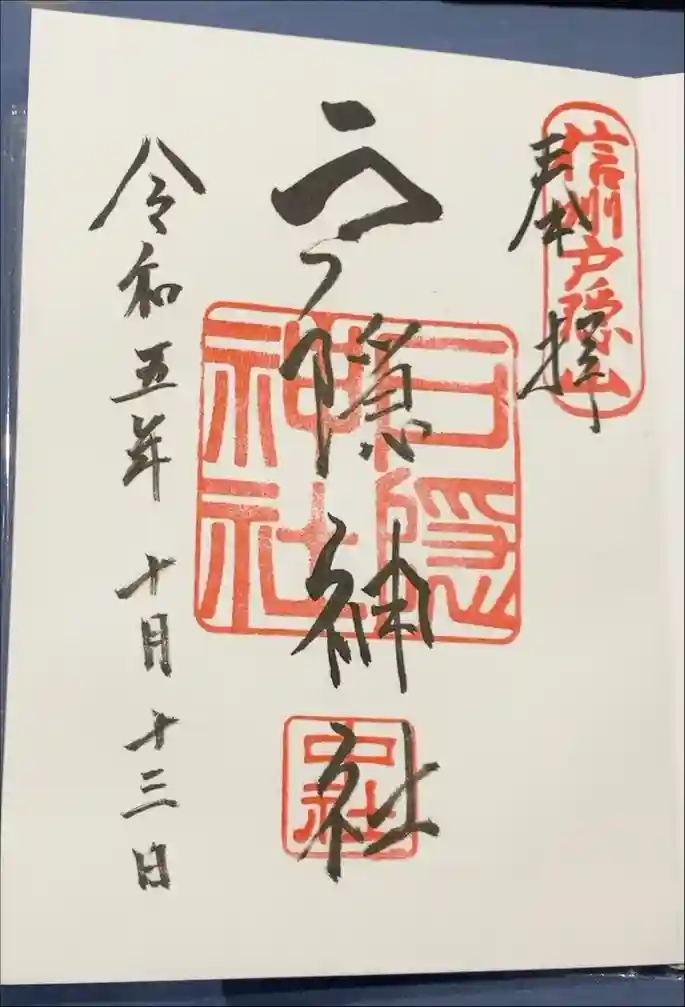 奉拝
信州戸隠山
戸隠神社
戸隠
神社
中社
令和五年 十月 十三日